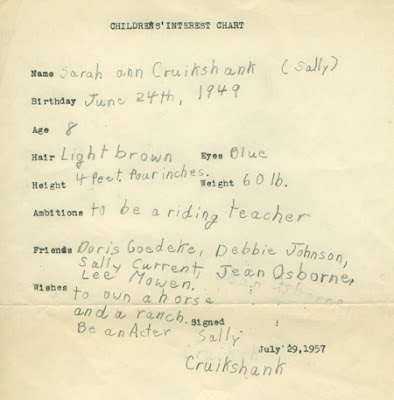 CHILDRENS'INTEREST CHART
Name Sarah ann Cruikshank (Sally)
Birthday June 24th, 1949
Age 8
Hair Light brown Eyes Blue
Height 4 feet. four inches. Weight 60 lb.
Ambitions to be a riding teacher
Friends Doris Goedeke, Debbie Johnson,
Sally Current, Jean Osborne,
Lee Mowen.
Wishes to own a horse
and a ranch. Signed
Be an Acter Sally
July 29,1957
Cruikshank